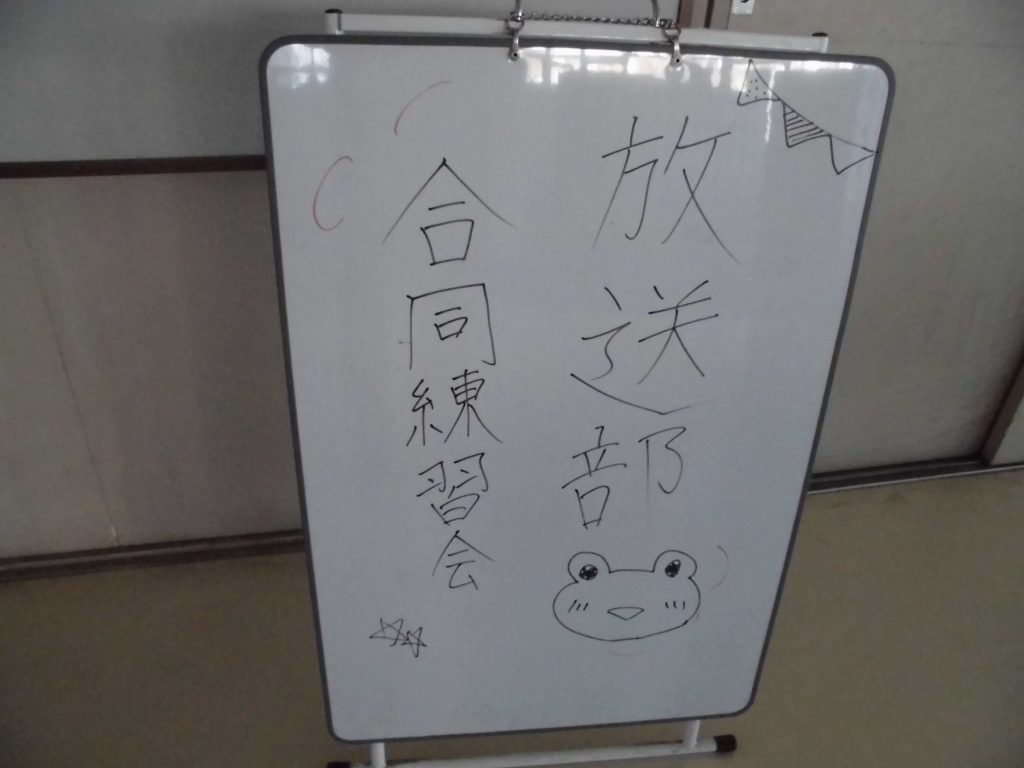 放送部
合同練習会